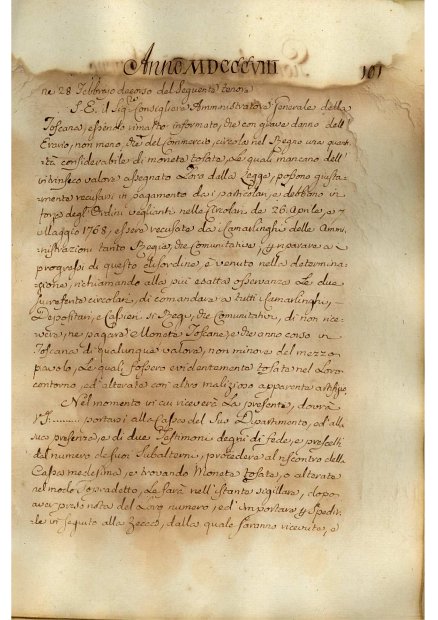 Anno MDCCCVIII
101
ne 28 Febbraio decorso del Seguente tenore
S. E. il Sig.re Consigliere Amministratore Generale della
Toscana, essendo rimasto informato, che con grave danno dell'
Erario, non meno, che del Commercio, circola nel Regno una quanti-
tà considerabile di moneta tosata, le quali mancano dell'
intrinseco valore assegnato Loro dalla Legge, possono giusta-
mente recusarsi in pagamento dai particolari, e debbono in
forza degl'Ordini veglianti nelle Circolari de 26. Aprile, e 7
Maggio 1768, essere recusate dai Camarlinghi delle Ammi-
nistrazioni tanto Regie, che Comunitative, p riparare a i
progressi di questo disordine, è venuto nella determina-
zione, richiamando alla più esatta osservanza Le due
surreferite circolari, di comandare a tutti i Camarlinghi,
Depositari, e Cassieri sì Regj, che Comunitativi, di non rice-
vere, ne pagare Moneta Toscane, e che anno corso in
Toscana di qualunque valore, non minore del mezzo
paolo, Le quali fossero evidentemente tosate nel Loro
contorno, ed alterate con altro malizioso apparente
Nel momento in cui riceverà La presente, dovrà
V.S. ......... portarsi alla Cassa del Suo Dipartimento, ed alla
sua presenza, e di due Testimoni degni di fede, e prescelti
dal numero de suoi Subalterni, procedere al riscontro della
Cassa medesima, e trovando Monete tosate, o alterate
nel modo Sopradetto, Le farà nell'istante sigillare, dopo
aver preso nota del Loro numero, ed importare, p Spedir-
le in seguito alla Zecca, dalla quale saranno ricevute, e